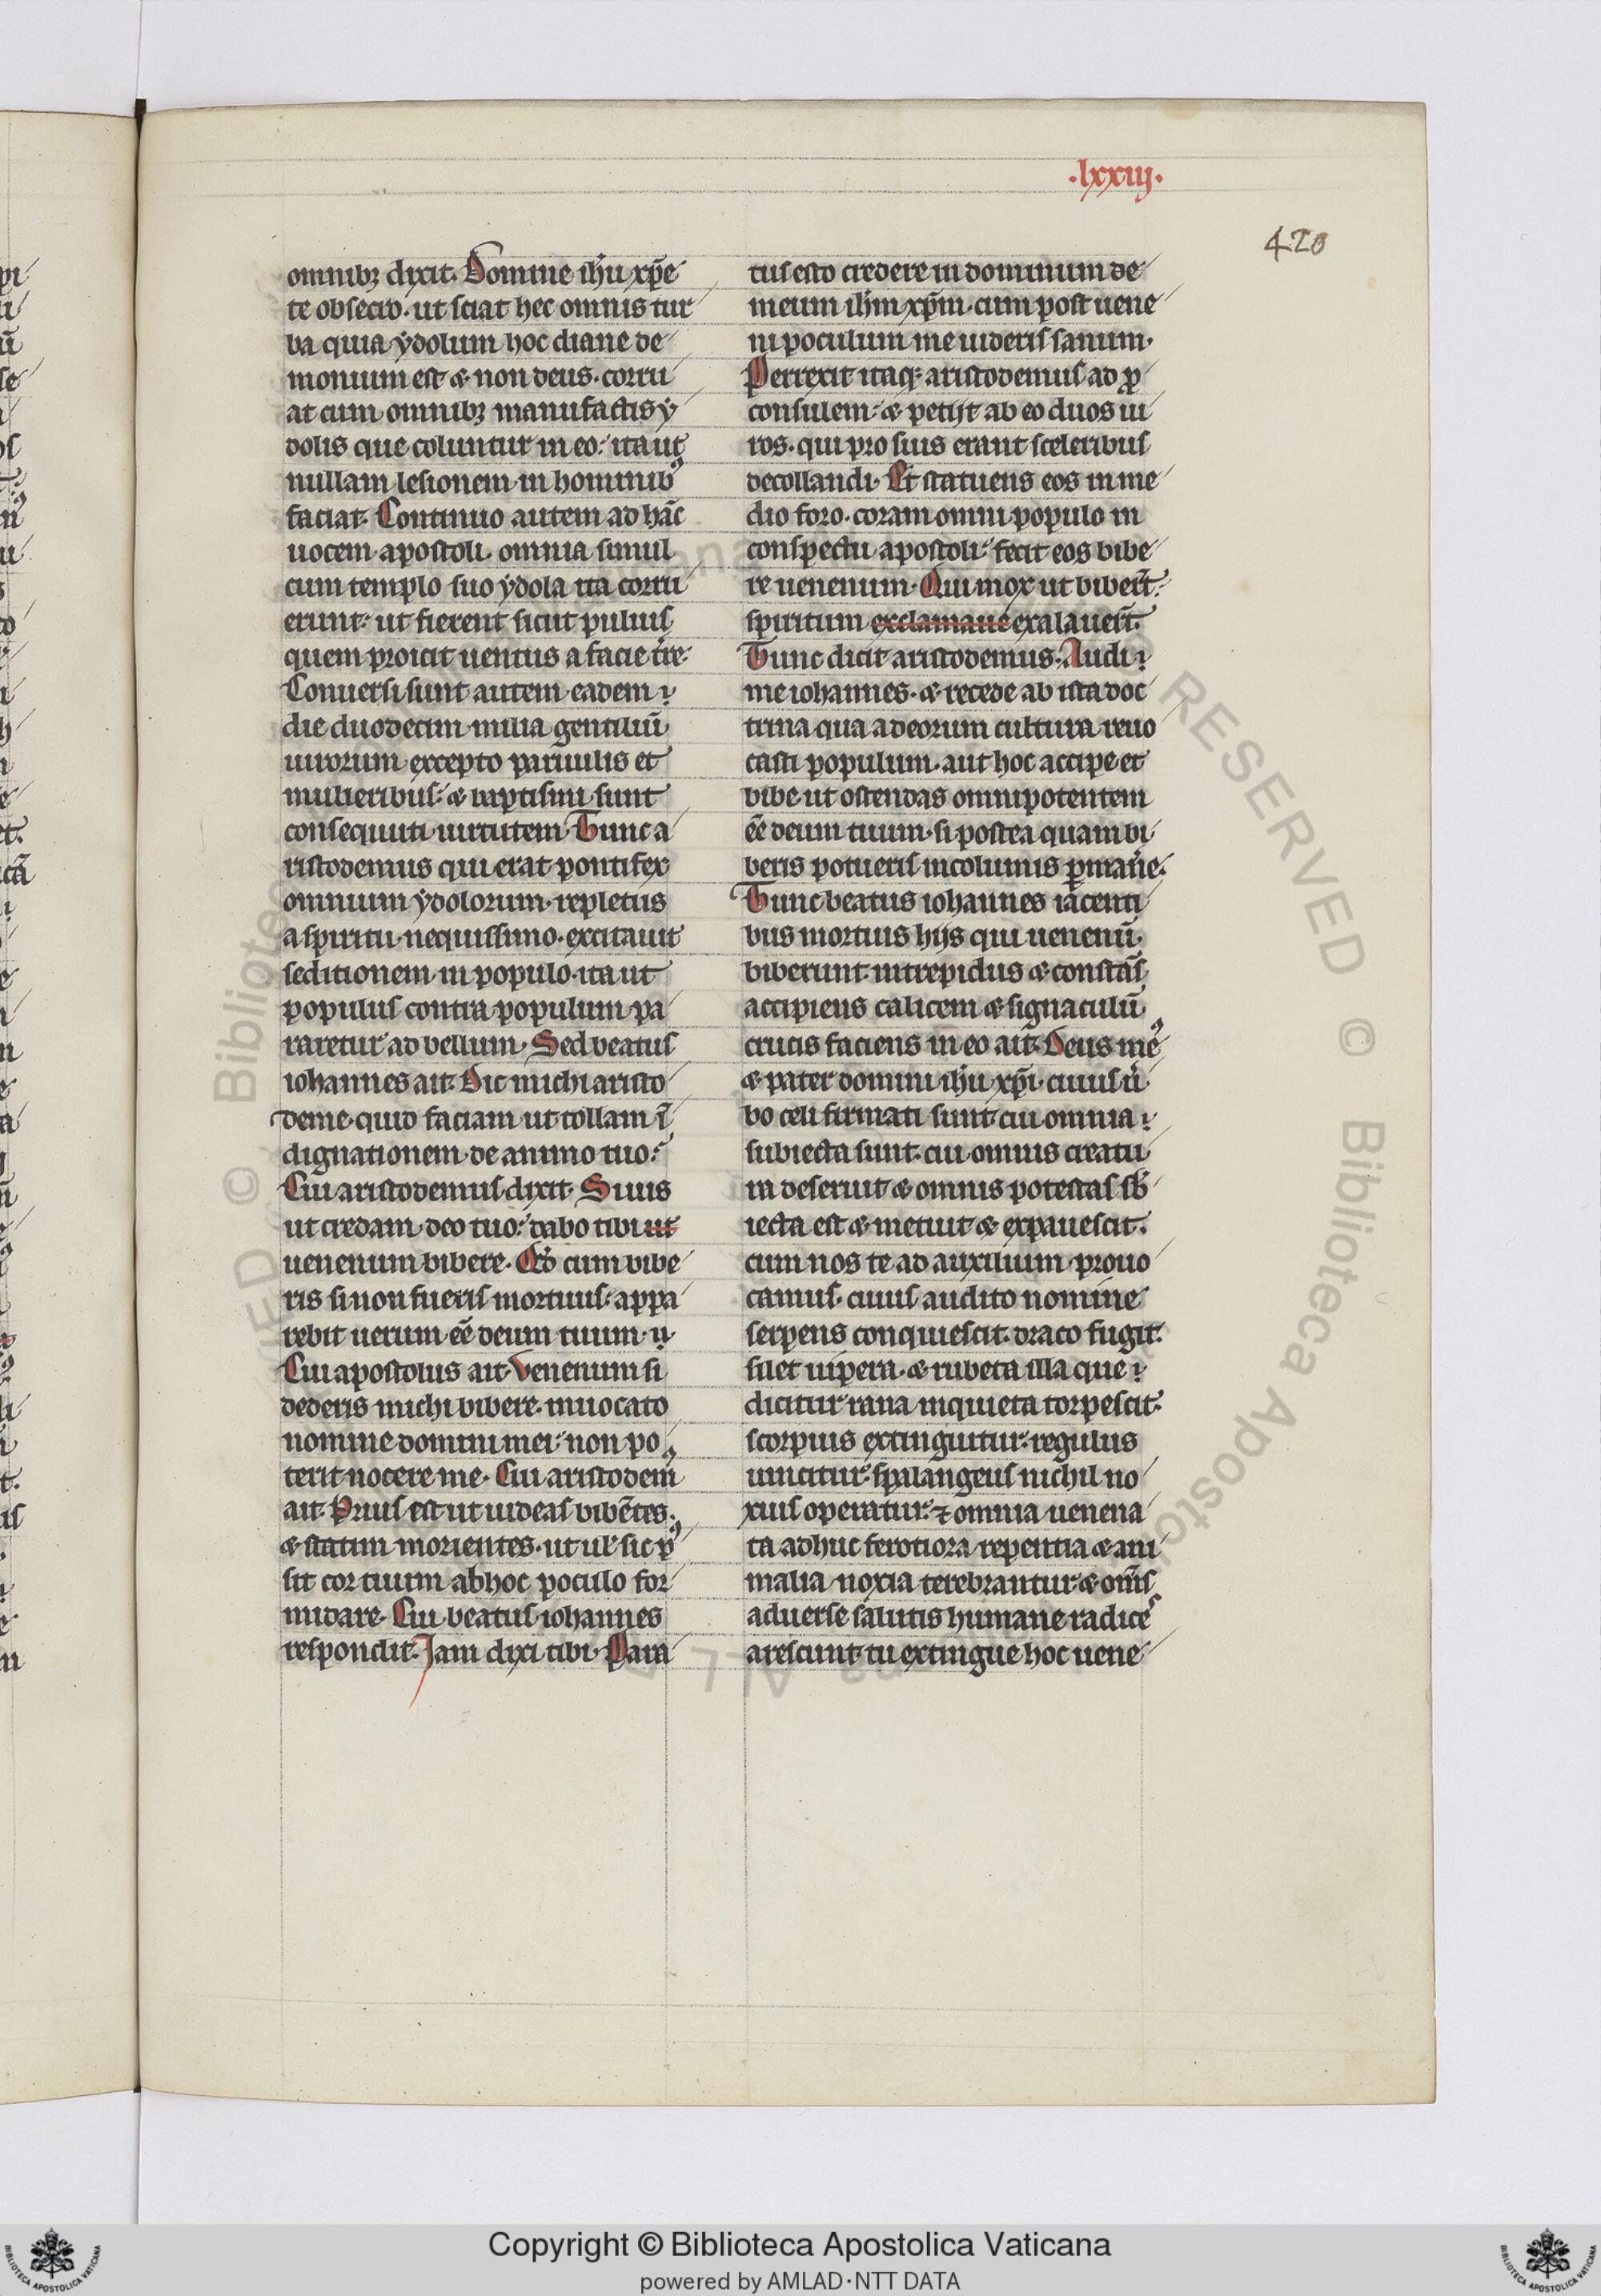 .lxxiij.
420
omnibꝫ dixit. Domine ih̄u xp̄e
te obsecro. ut sciat hec omnis tur
ba quia ydolum hoc diane de
monium est & non deus. corru
at cum omnibꝫ manufactis y
dolis que coluntur in eo. ita ut
nullam lesionem in hominibꝰ
faciat. Continuo autem ad hāc
uocem apostoli. omnia simul
cum templo suo ydola ita corru
erunt. ut fierent sicut puluis
quem proicit uentus a facie t̄re.
Conuersi sunt autem eadem
die duodecim milia gentiliū
uirorum excepto paruulis et
mulieribus. & baptismi sunt
consequuti uirtutem. Tunc a
ristodemus qui erat pontifex
omnium ydolorum. repletus
a spiritu nequissimo. excitauit
seditionem in populo. ita ut
populus contra populum pa
raretur ad bellum. Sed beatus
iohannes ait. Dic michi aristo
deme. quid faciam ut tollam ī
dignationem de animo tuo.
Cui aristodemus dixit. Si uis
ut credam deo tuo. dabo tibi ut
uenenum bibere. Qd̓ cum bibe
ris si non fueris mortuus. appa
rebit uerum eē deum tuum.
Cui apostolus ait. Venenum si
dederis michi bibere. inuocato
nomine domini mei. non po
terit nocere me. Cui aristodemꝰ
ait. Prius est ut uideas bibētes.
& statim morientes. ut ul̓ sic pꝰ
sit cor tuum ab hoc poculo for
midare. Cui beatus iohannes
respondit. Jam dixi tibi. Para
tus esto credere in dominum de
meum ih̄m xp̄m. cum post uene
ni poculum me uideris sanum.
Perrexit itaqꝫ aristodemus ad ꝓ
consulem. & petijt ab eo duos ui
ros. qui pro suis erant sceleribus
decollandi. Et statuens eos in me
dio foro. coram omni populo in
conspectu apostoli. fecit eos bibe
re uenenum. Qui mox ut bibeꝛ̄t.
spiritum exclamaue exalauer̄t.
Tunc dicit aristodemus. Audi
me iohannes. & recede ab ista doc
trina qua a deorum cultura reuo
casti populum. aut hoc accipe et
bibe ut ostendas omnipotentem
eē deum tuum. si postea quam bi
beris potueris incolumis ꝑman̓e.
Tunc beatus iohannes iacenti
bus mortuis hijs qui uenenū
biberunt. intrepidus & constās
accipiens calicem & signaculū
crucis faciens in eo ait. Deus meꝰ
& pater domini ih̄u xp̄i. cuius u̓
bo celi firmati sunt. cui omnia
subiecta sunt. cui omnis creatu
ra deseruit & omnis potestas sb̓
iecta est & metuit & expauescit.
cum nos te ad auxilium prouo
camus. cuius audito nomine
serpens conquiescit. draco fugit.
silet uipera. & rubeta illa que
dicitur rana inquieta torpescit.
scorpius extinguitur. regulus
uincitur. spalangeus nichil no
xius operatur. ⁊ omnia uenena
ta adhuc ferotiora repentia & ani
malia noxia terebrantur. & om̄s
aduerse salutis humane radices
arescunt. tu extingue hoc uene
Copyright © Biblioteca Apostolica Vaticana
powered by AMLAD·NTT DATA